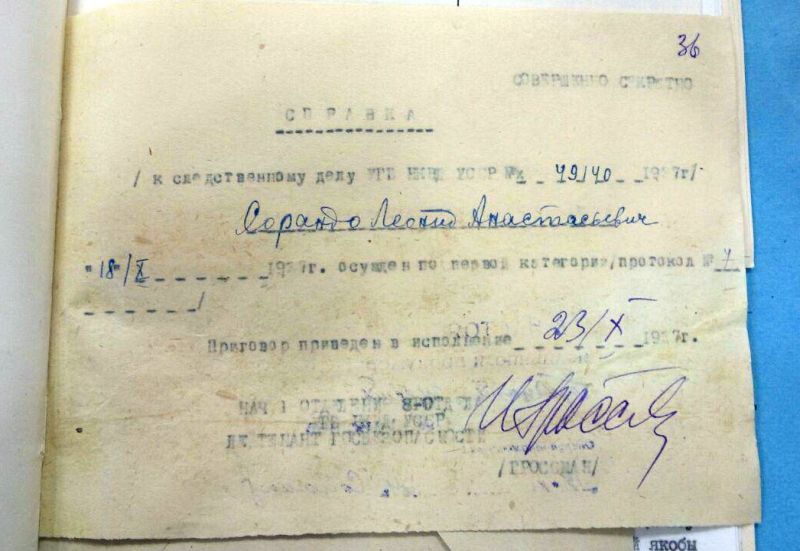 36
СОВЕРШЕННО СЕКРЕТНО
СПРАВКА
/ к следственному делу УГБ НКВД УССР № 49140 1937г/
Сорандо Леонид Анастасьевич
"18"/X 1937г. осужден по первой категории/протокол № 7
/
Приговор приведен в исполнение 23/X 1937г.
НАЧ 1 ОТДЕЛЕНИЯ 8 ОТДЕЛА
УГБ НКВД УССР
ЛЕЙТЕНАНТ ГОСБЕЗОПАСНОСТИ
/ГРОССМАН/
якобы